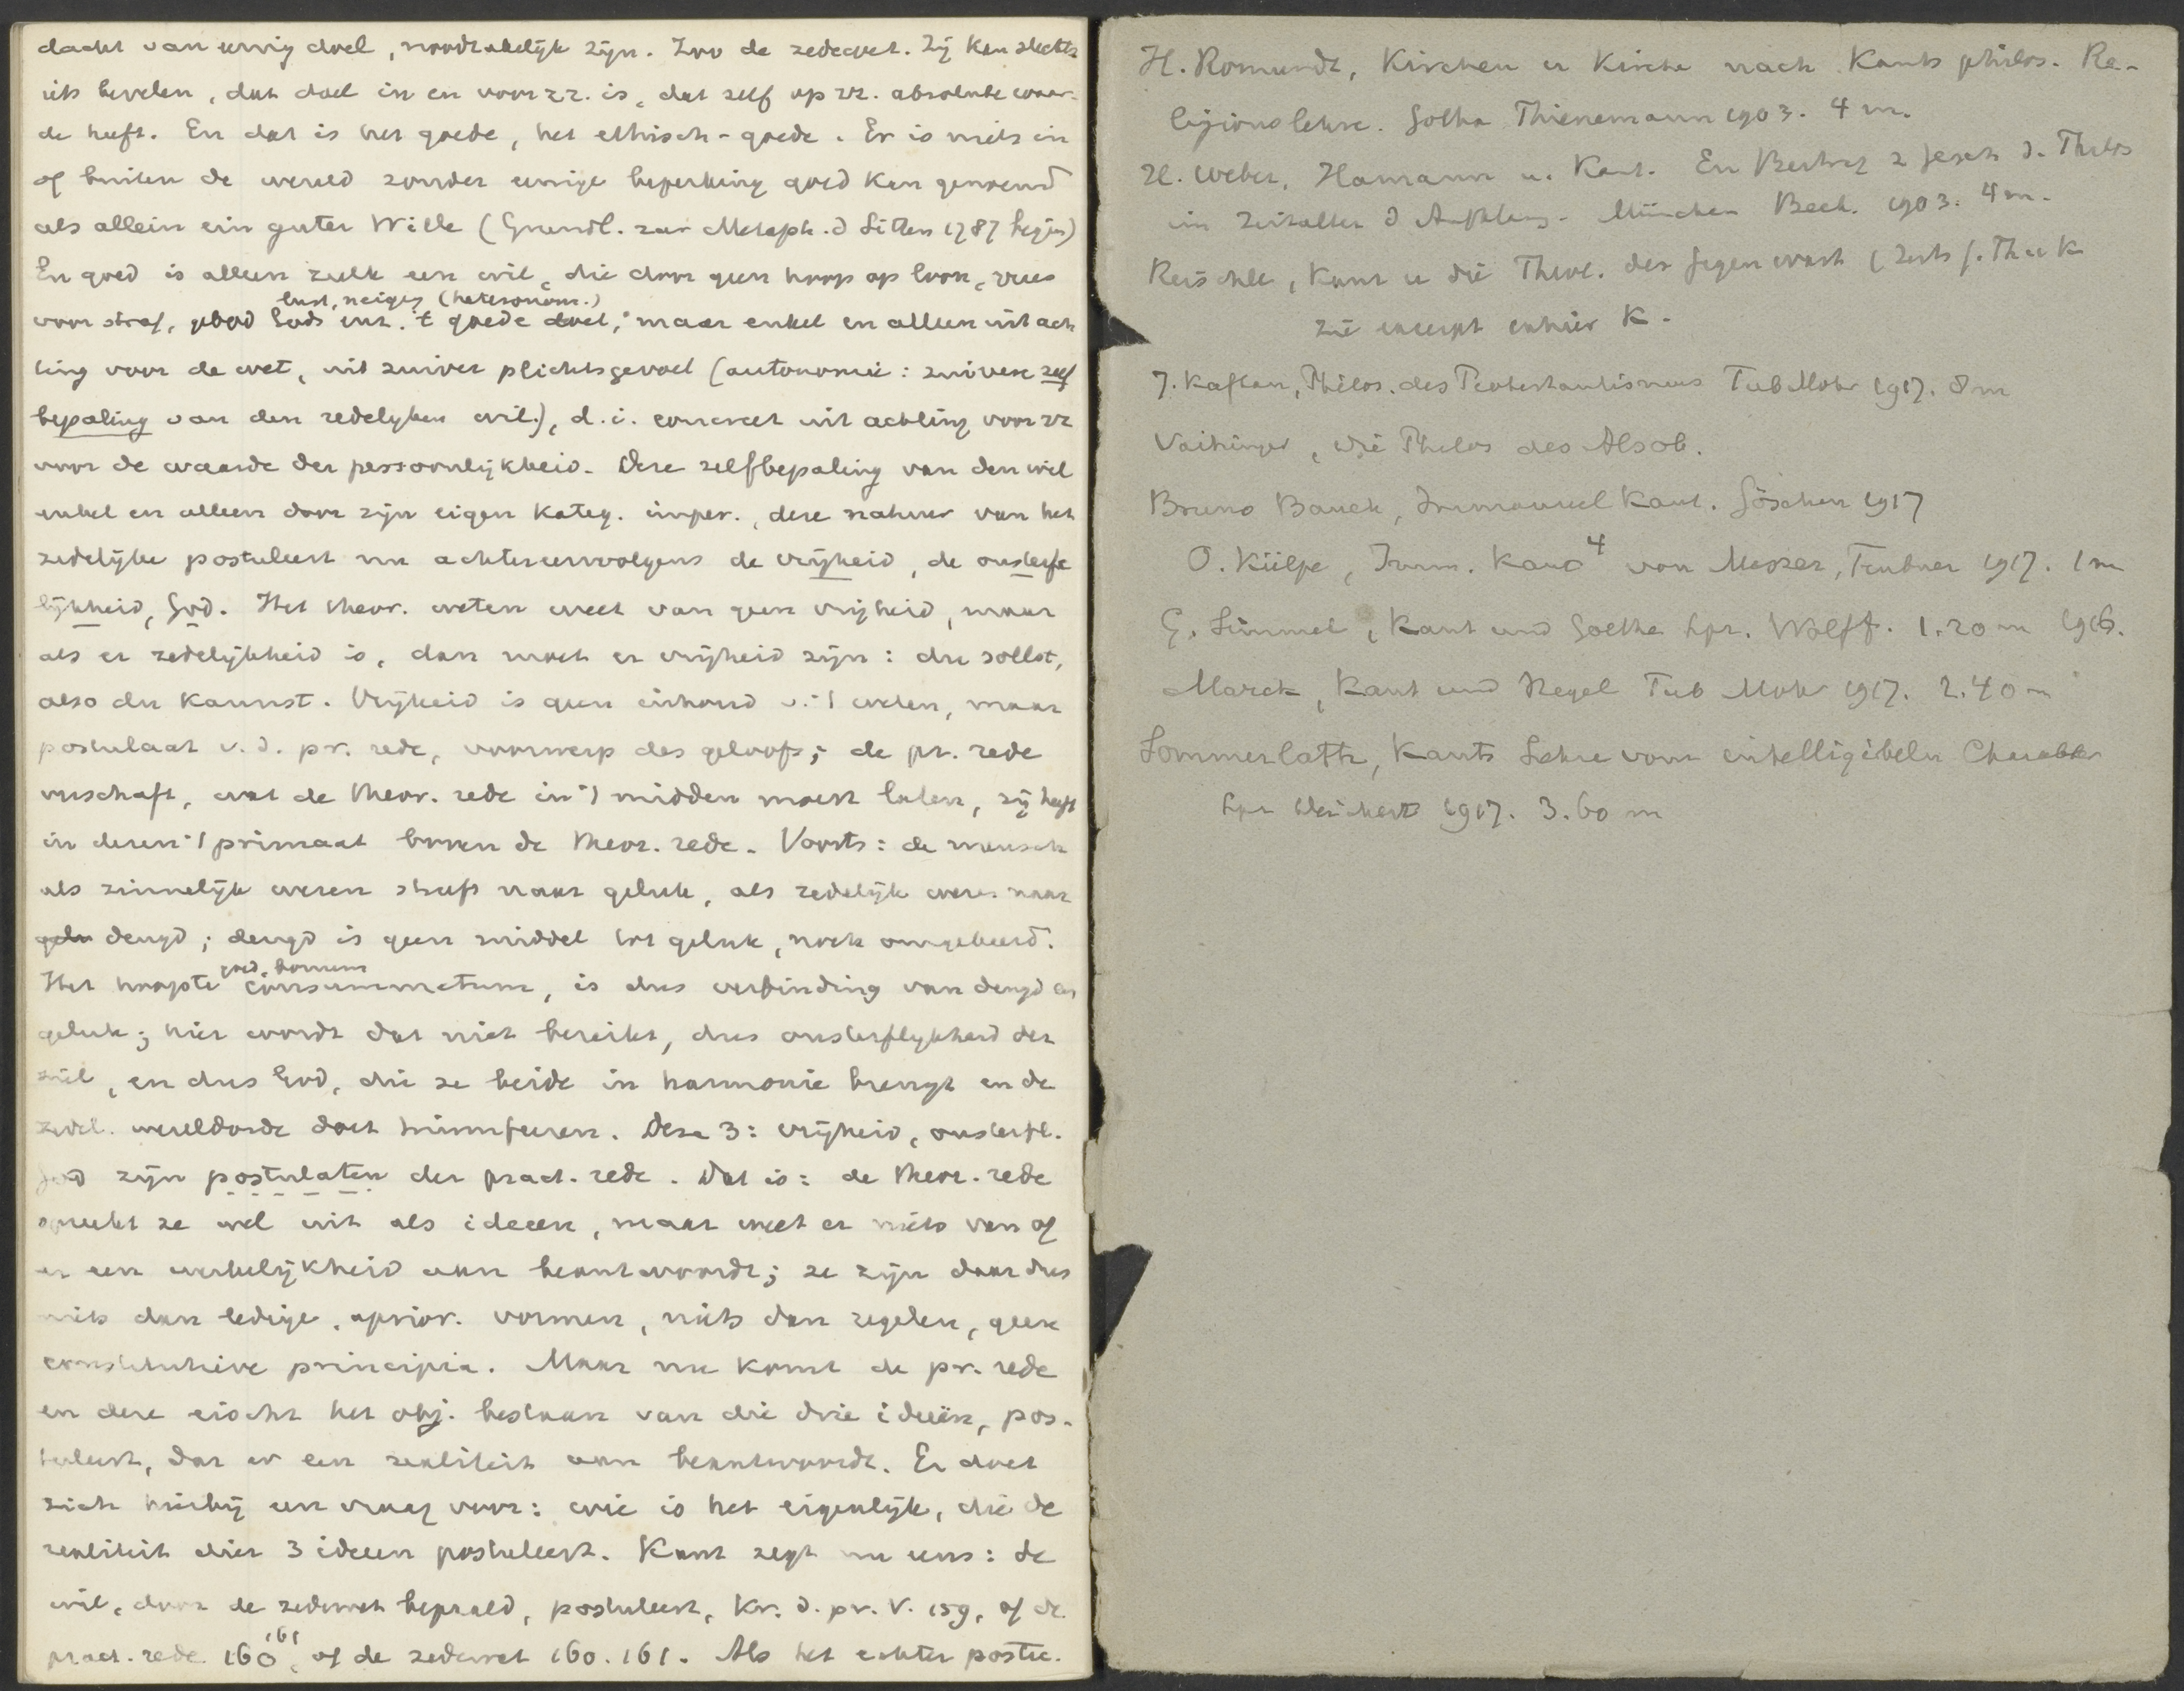 dacht van eenig doel, noodzakelijk zijn. Zoo de zedewet. Zij kan slechts
iets bevelen, dat doel in en voor zz. is, dat zelf op zz. absolute waar-
de heeft. En dat is het goede, het ethisch-goede. Er is niets in
of buiten de wereld zonder eenige beperking goed kan genoemd
als allein ein guter Wille (Grundl. zur Metaph. d Sitten 1787 begin)
En goed is alleen zulk een wil, die door geen hoop op loon, vrees
lust, neiging (heteronom.)
voor straf, gebod Gods enz. 't goede doet, maar enkel en alleen uit ach
ting voor de wet, uit zuiver plichtsgevoel (autonomie: zuivere zelf
bepaling van den redelyken wil), d.i. concreet uit achting voor zz
voor de waarde der persoonlijkheid. Deze zelfbepaling van den wil
enkel en alleen door zijn eigen kateg. imper., deze natuur van het
zedelijke postuleert nu achtereenvolgens de vrijheid, de onsterfe
lijkheid, God. Het theor. weten weet van geen vrijheid, maar
als er zedelijkheid is, dan moet er vrijheid zijn: du sollst,
also du kannst. Vrijheid is geen inhoud v. 't weten, maar
postulaat v. d. pr. rede, voorwerp des geloofs; de pr. rede
verschaft, wat de theor. rede in 't midden moest laten, zij heeft
in dezen 't primaat boven de theor. rede. Voorts: de mensch
als zinnelijk wezen streeft naar geluk, als zedelijk wezen naar
gelu deugd; deugd is geen middel tot geluk, noch omgekeerd.
goed, bonum
Het hoogste consummatum, is dus verbinding van deugd en
geluk; hier wordt dat niet bereikt, dus onsterflykheid der
ziel, en dus God, die ze beide in harmonie brengt en de
zedel. wereldorde doet triumfeeren. Deze 3: vrijheid, onsterfl.
God zijn postulaten der pract. rede. Dat is: de theor. rede
spreekt ze wel uit als ideeen, maar weet er niets van of
er een werkelijkheid aan beantwoordt; ze zijn daar dus
niets dan ledige, aprior. vormen, niets dan regelen, geen
constitutieve principia. Maar nu komt de pr. rede
en deze eischt het obj. bestaan van die drie ideeën, pos-
tuleert, dat er een realiteit aan beantwoordt. Er doet
zich hierbij een vraag voor: wie is het eigenlijk, die de
realiteit dier 3 ideeen postuleert. Kant zegt nu eens: de
wil, door de zedewet bepaald, postuleert, Kr. d. pr. V. 159, of de
pract. rede 160, 161 of de zedewet 160. 161. Als het echter postu-
H. Romundt, Kirchen u Kirche nach Kants philos. Re-
ligionslehre. Gotha Thienemann 1903. 4 m.
H. Weber, Hamann u. Kant. Ein Beitrag z Gesch d. Philos
im Zeitalter d Aufklärung. München Beck. 1903. 4 m.
Reischle, Kant u die Theol. der Gegenwart (Zeits f. Th u K
zie excerpt cahier K.
J. Kaftan, Philos. des Protestantismus Tub Mohr 1917. 8 m
Vaihinger, Die Philos des Als ob.
Bruno Bauch, Immanuel Kant. Göschen 1917
O. Külpe, Imm. Kant⁴ von Messer, Teubner 1917. 1 m
G. Simmel, Kant und Goethe Lpz. Wolff. 1.20 m 1916.
Marck, Kant und Hegel Tub Mohr 1917. 2.40 m
Sommerlatte, Kants Lehre vom intelligibeln Charakter
Lpz Deichert 1917. 3.60 m